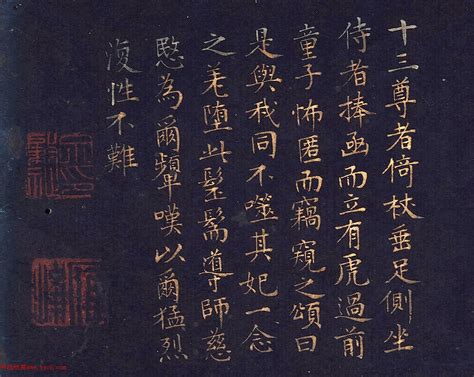 十三尊者倚杖垂足側坐
侍者捧函而立有虎過前
童子怖匿而竊窺之頌曰
是與我同不噬其妃一念
之差墮此髬髵導師慈
愍為爾顰嘆以爾猛烈
復性不難